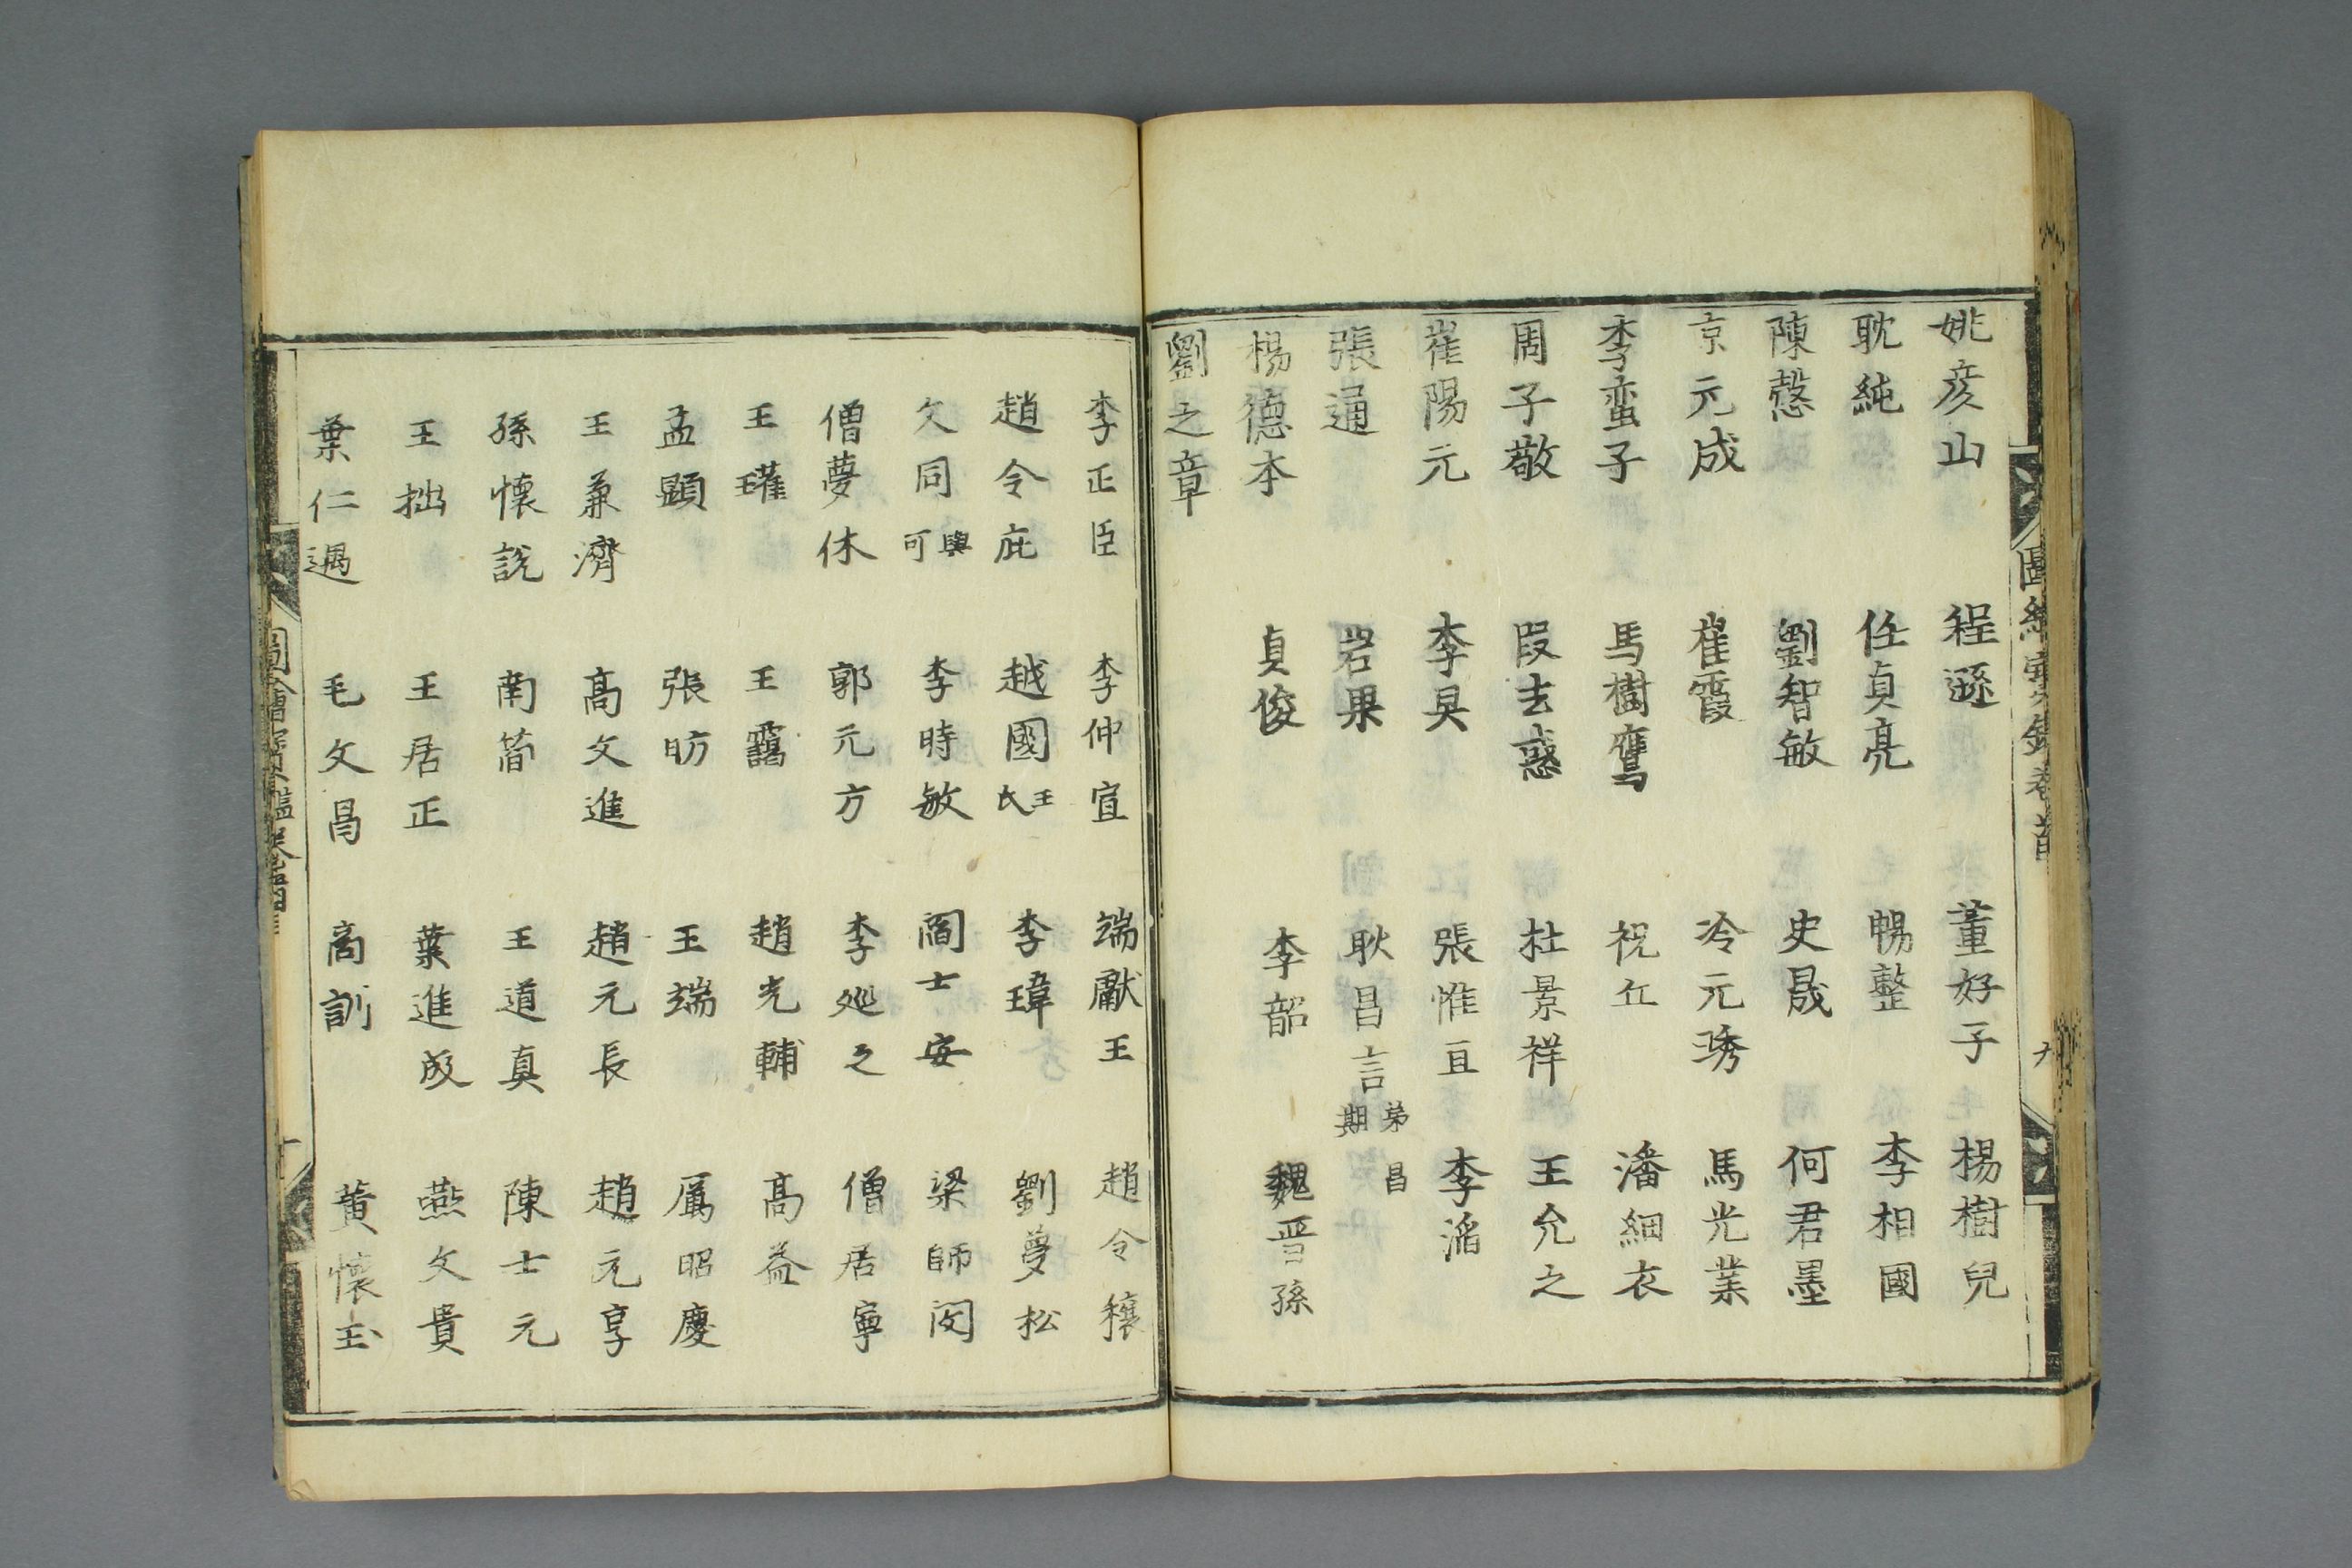 姚彦山 程遜 董好子 楊樹兒
耽純 任貞亮 暢整 李相國
陳慤 劉智敏 史晟 何君墨
京元成 崔霞 冷元琇 馬光業
李蛮子 馬樹鷹 祝丘 潘細衣
周子敬 段去惑 杜景祥 王允之
崔陽元 李旻 張惟亘 李滔
張通 岩果 耿昌言 弟昌期
楊德本 貞俊 李韶 魏晋孫
劉之章
李正臣 李仲宣 端獻王 趙令穰
趙令庇 越國 王氏 李瑋 劉夢松
文同 與可 李時敏 閻士安 梁師閔
僧夢休 郭元方 李延之 僧居寧
王瓘 王靄 趙光輔 高益
孟顯 張昉 王端 厲昭慶
王兼濟 高文進 趙元長 趙元亨
孫懷說 南簡 王道真 陳士元
王拙 王居正 葉進成 燕文貴
葉仁遇 毛文昌 高訓 黃懷玉